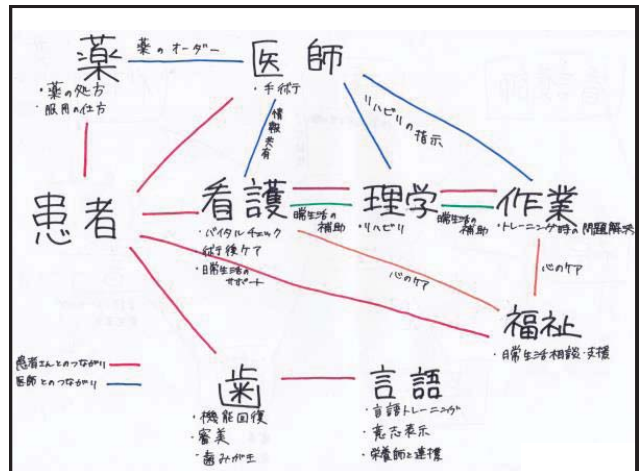 薬
薬のオーダー
医師
・薬の処方
・服用の仕方
・手術
情報共有
リハビリの指示
患者
看護
日常生活の
補助
理学
日常生活の
補助
作業
・バイタルチェック
術後ケア
・日常生活の
サポート
・リハビリ
・トレーニング時の問題解決
心のケア
心のケア
福祉
・日常生活相談・支援
患者さんとのつながり
医師とのつながり
歯
・機能回復
・審美
・歯みがき
言語
・言語トレーニング
・意志表示
・栄養師と連携